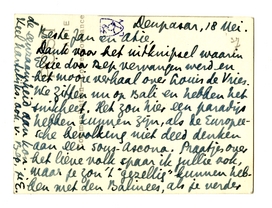 Denpasar, 18 Mei.
Beste Jan en Atie,
Dank voor het uitknipsel waarin
Elsie door Bep vervangen werd en
het mooie verhaal over Louis de Vries.
We zitten nu op Bali en hebben het
snikheet. Het zou hier een paradijs
hebben kunnen zijn, als de Europe-
sche bevolking niet deed denken
aan een sous-Ascona. Praatjes over
het lieve volk spaar ik jullie ook,
maar je zou 't "gezellig" kunnen heb-
ben met den Balinees, als je verder